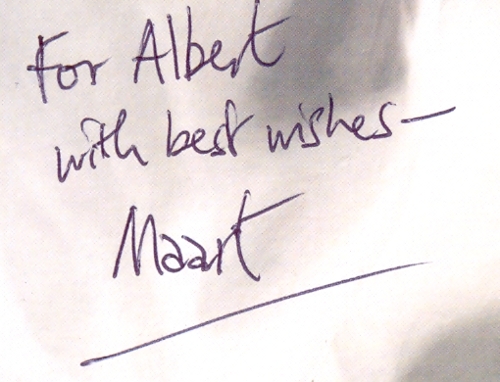 For Albert
with best wishes—
Maart